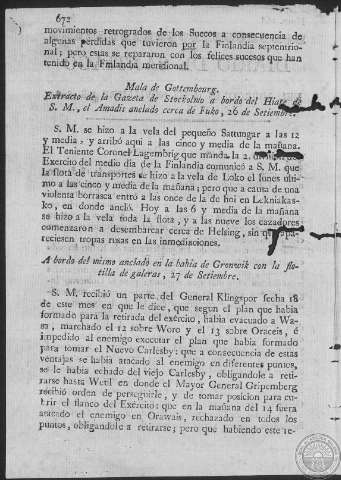 672
movimientos retrogrados de los Suecos a consecuencia de
algunas perdidas que tuvieron por la Finlandia septentrio-
nal; pero estas se repararon con los felices sucesos que han
tenido en la Finlandia meridional.
Mala de Gottembourg.
Extracto de la Gazeta de Stockolmo a bordo del Hiate de
S. M., el Amadis anclado cerca de Fuko, 26 de Setiembre.
S. M. se hizo a la vela del pequeño Sattungar a las 12
y media, y arribó aqui a las cinco y media de la mañana.
El Teniente Coronel Lagembrig que manda la 2. division
Exercito del medio dia de la Finlandia comunicó a S. M. que
la flota de transportes se hizo a la vela de Loko el lunes últi-
mo a las cinco y media de la mañana; pero que a causa de una
violenta borrasca entró a las once de la de hoi en Lekniakas-
ko, en donde ancló. Hoy a las 6 y media de la mañana
se hizo a la vela toda la flota, y a las nueve los cazadores
comenzaron a desembarcar cerca de Helsing, sin que apa-
reciesen tropas rusas en las inmediaciones.
A bordo del mismo anclado en la bahia de Gronwik con la flo-
tilla de galeras, 27 de Setiembre.
S. M. recibió un parte del General Klingspor fecha 18
de este mes en que le dice, que segun el plan que habia
formado para la retirada del exército, habia evacuado a Wa-
sa, marchado el 12 sobre Woro y el 13 sobre Oraceis, é
impedido al enemigo executar el plan que habia formado
para tomar el Nuevo Carlesby: que a consecuencia de estas
ventajas se habia atacado al enemigo en diferentes puntos,
se le habia echado del viejo Carlesby, obligandole a reti-
rarse hasta Wetil en donde el Mayor General Gripemberg
recibió orden de perseguirle, y de tomar posicion para cu-
brir el flanco del Exército: que en la mañana del 14 fuera
atacado el enemigo en Orawais, rechazado en todos los
puntos, obligandole a retirarse; pero que habiendo este re-